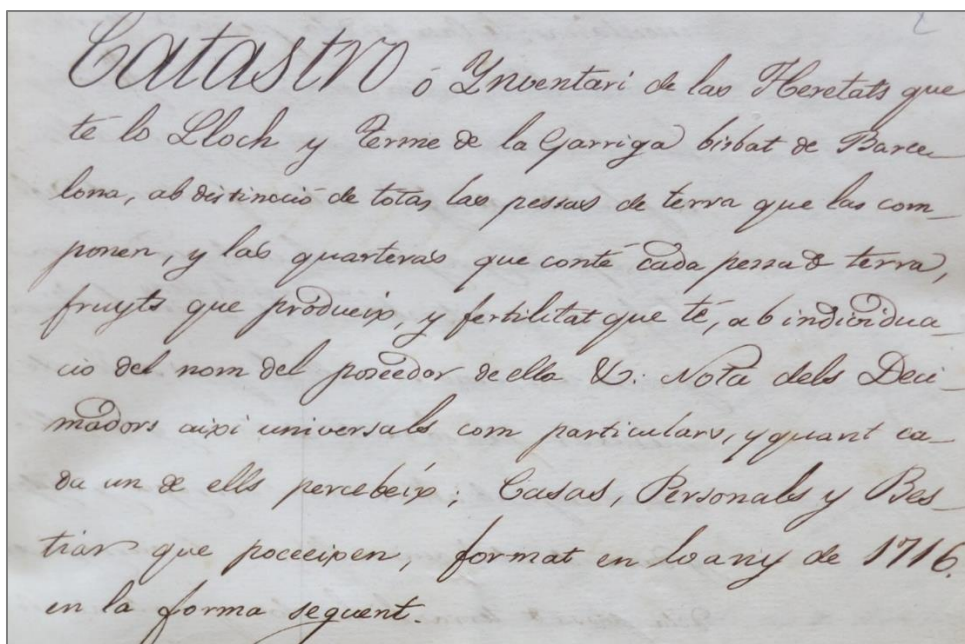 Catastro ó Ynventari de las Heretats que
té lo Lloch y Terme de la Garriga bisbat de Barce-
lona, ab distincció de totas las pessas de terra que las com-
ponen, y las quarteras que conté cada pessa d terra,
fruyts que produeix, y fertilitat que té, ab individua-
ció del nom del poseedor de ella &: Nota dels Deci-
madors aixi universals com particulars, y quant ca-
da un de ells percebeix; Casas, Personals y Bes-
tiar que poceeixen, format en lo any de 1716.
en la forma seguent.